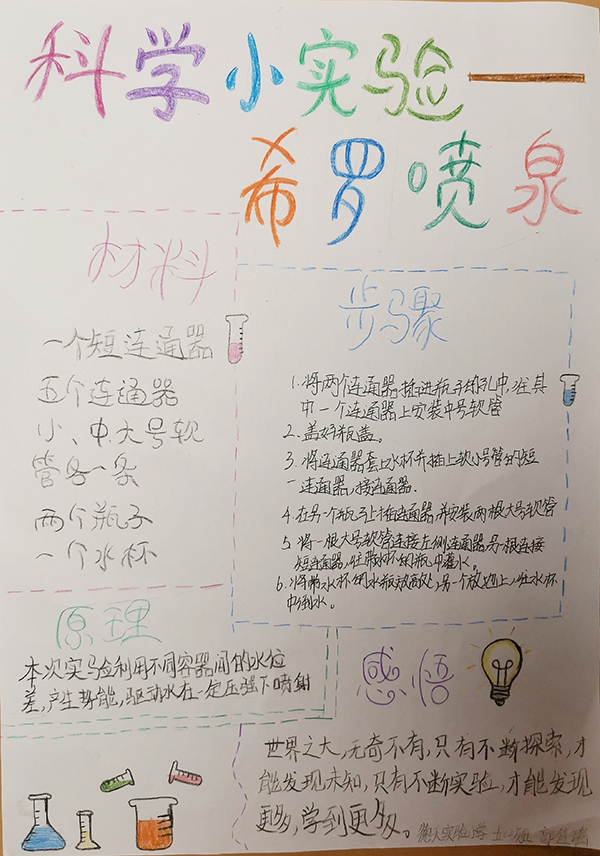 科学小实验——
希罗喷泉
材料
一个短连通器
五个连通器
小、中大号软
管各一条
两个瓶子
一个水杯
步骤
1.将两个连通器插进瓶子的孔中,在其
中一个连通器上安装中号软管
2.盖好瓶盖。
3.将连通器套上水杯并插上软小号管的短
连通器,接连通器.
4.在另一个瓶子上插连通器并安装两根大号软管
5.将一根大号软管连接左侧连通器,另一根连接
短连通器,往带水杯的瓶中灌水。
6.将带水杯的水瓶放高处,另一个放地上,往水杯
中倒水。
原理
本次实验利用不同容器间的水位
差,产生势能,驱动水在一定压强下喷射
感悟
世界之大,无奇不有,只有不断探索,才
能发现未知,只有不断实验,才能发现
更多,学到更多。
实验学